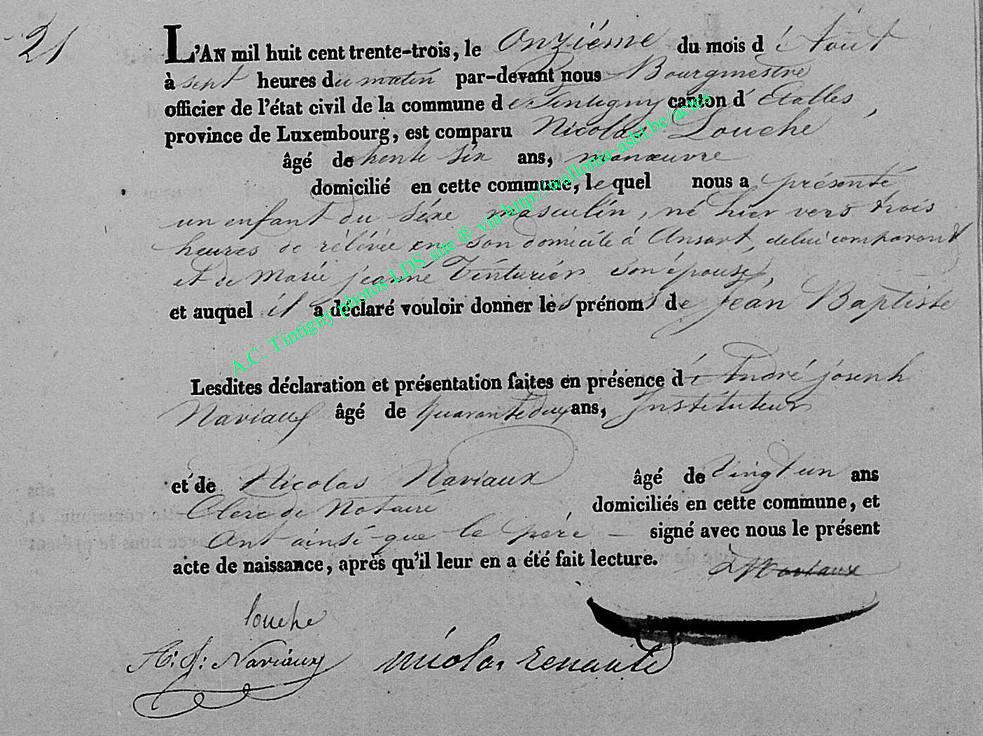 21
L'AN mil huit cent trente-trois, le Onziéme du mois d'Aout
à sept heures du matin par-devant nous Bourgmestre
officier de l'état civil de la commune de Tintigny canton d'Etalles,
province de Luxembourg, est comparu Nicolas Louche
âgé de trente six ans, manœuvre
domicilié en cette commune, le quel nous a présenté
un enfant du séxe masculin, né hier vers trois
heures de rélévée en son domicile à Ansart, de lui comparant
et de Marie jeanne Tinturier son épouse,
et auquel il a déclaré vouloir donner les prénoms de Jean Baptiste
Lesdites déclaration et présentation faites en présence d'André joseph
Naviaux âgé de quarante deux ans, Instituteur
et de Nicolas Naviaux âgé de vingt un ans
Clerc de Notaire domiciliés en cette commune, et
Ont ainsi que le pére signé avec nous le présent
acte de naissance, après qu'il leur en a été fait lecture.
louche
A. J. Naviaux nicolas
A.C. Tintigny photos LDS site ® via http://wallonia-asbl.be/actes